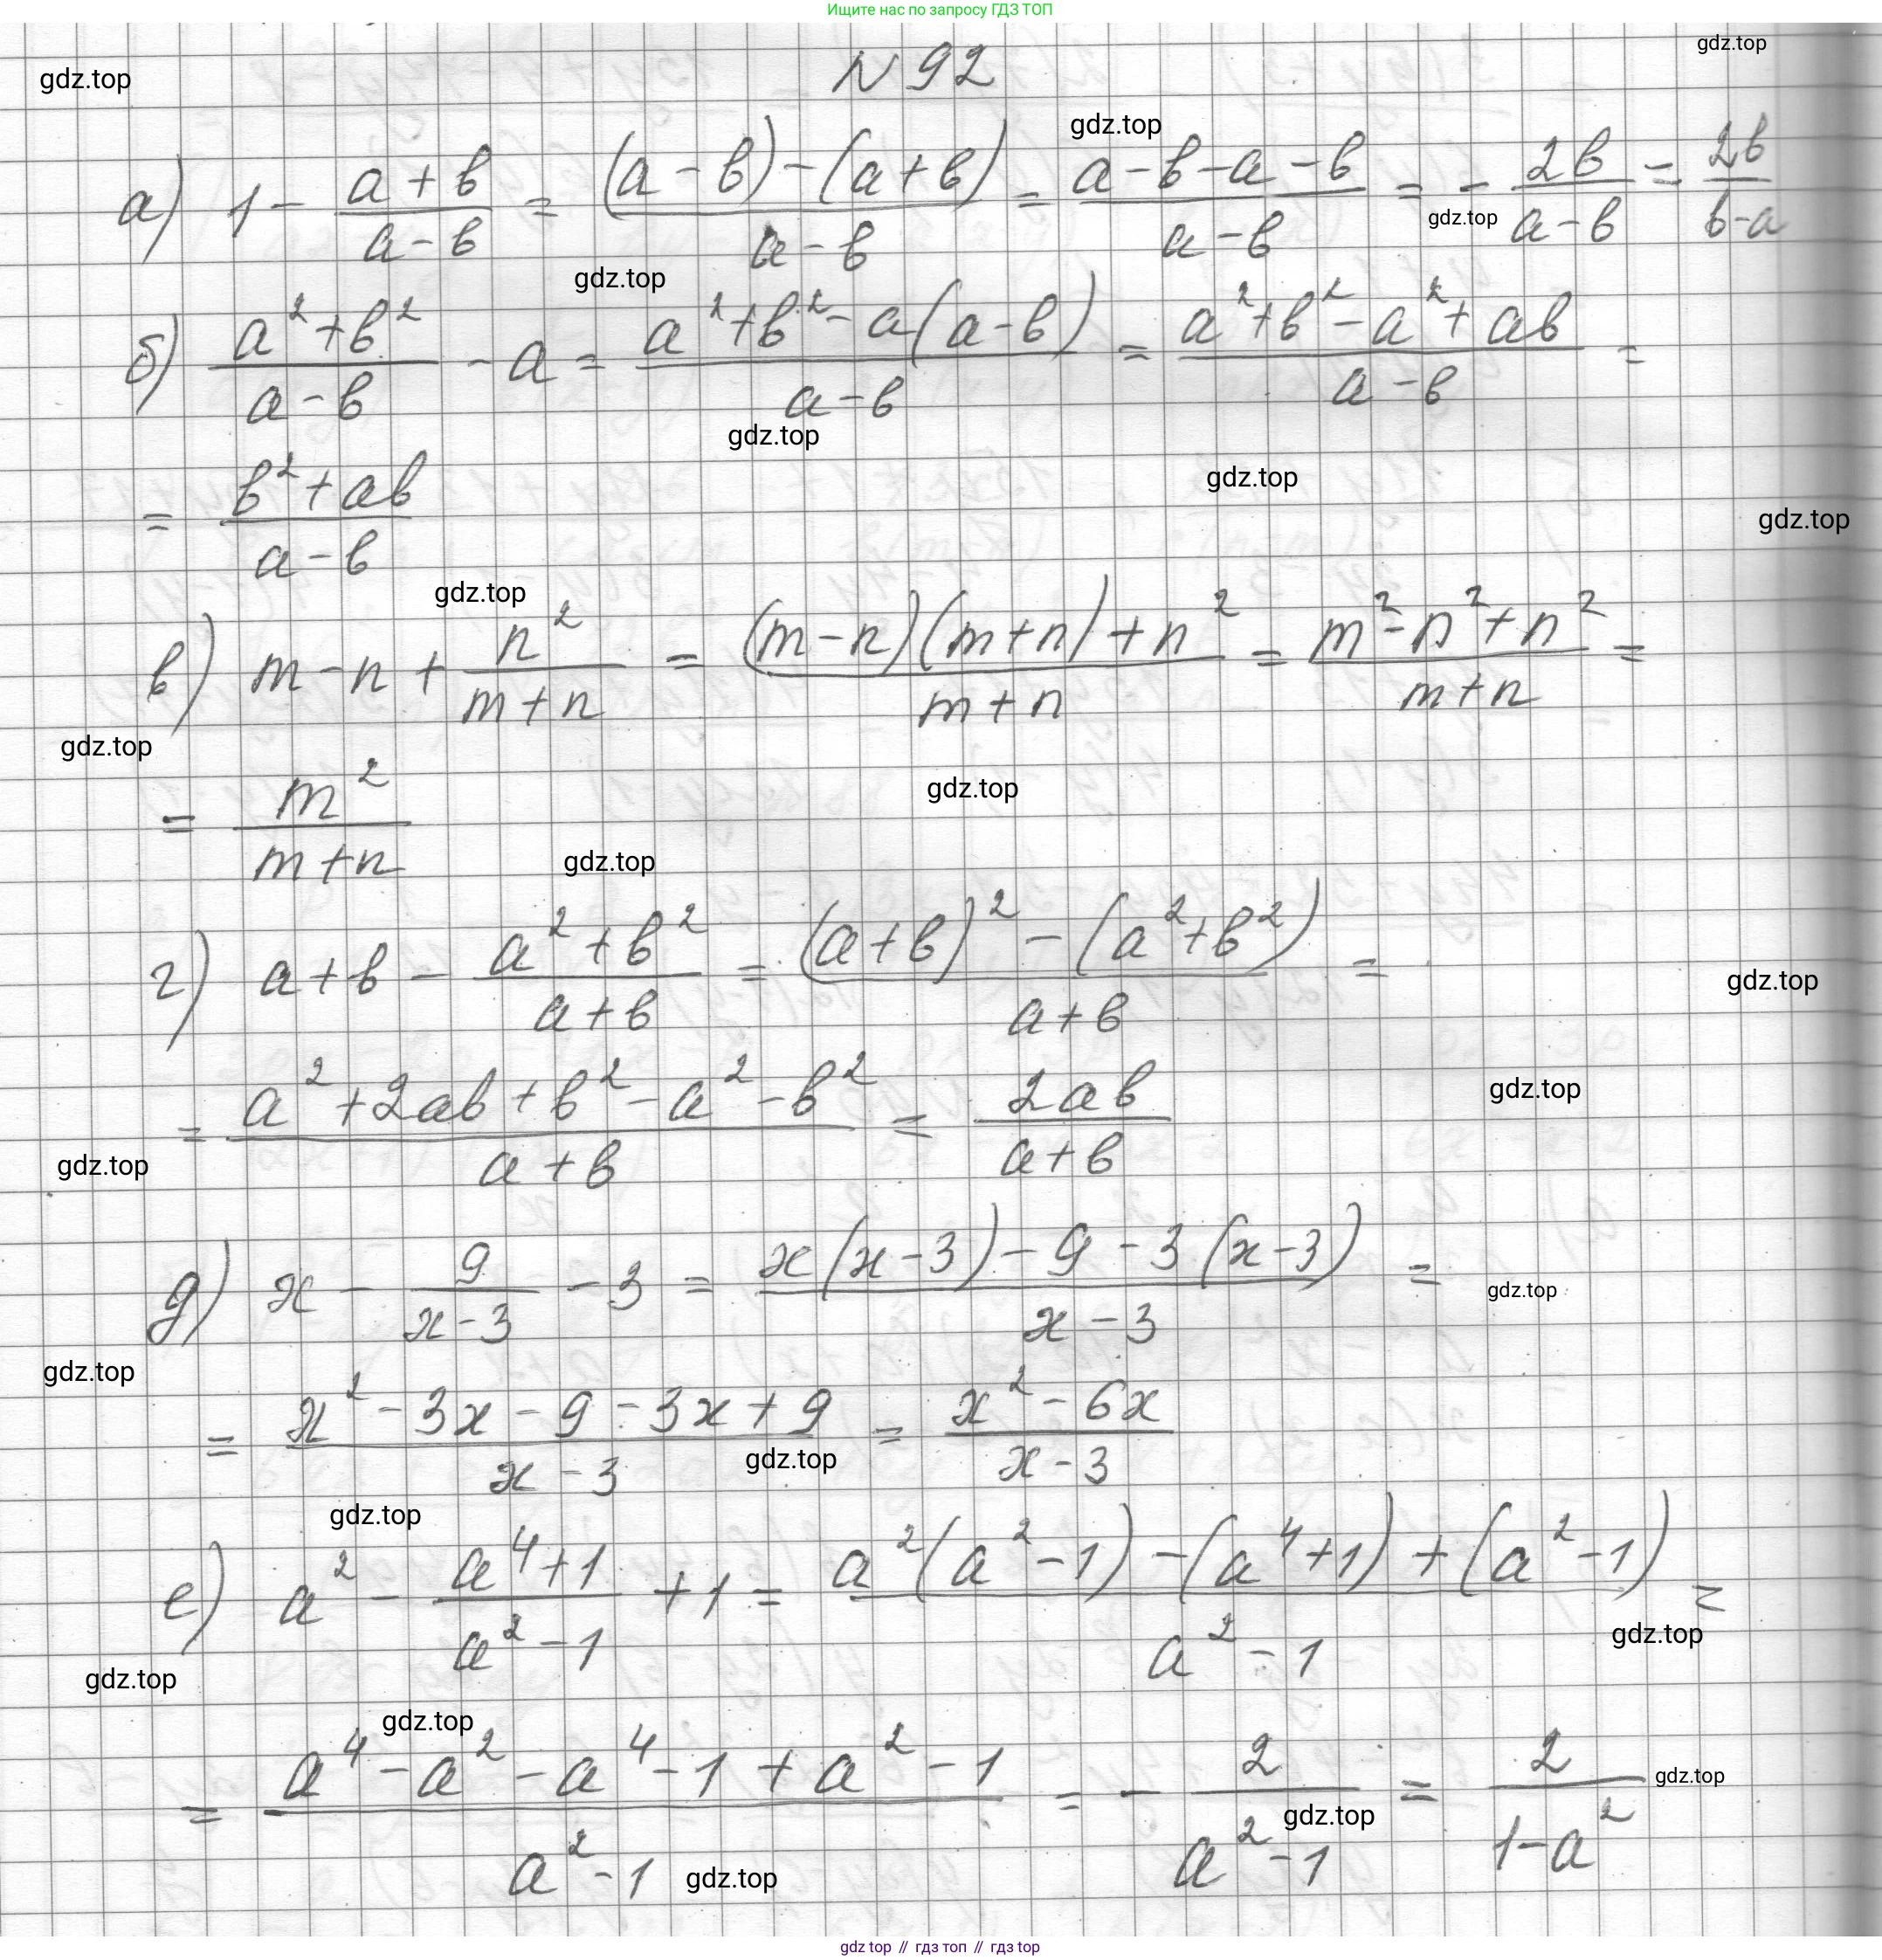 Ищите нас по запросу ГДЗ ТОП
gdz.top
gdz.top
N 92
gdz.top
а) 1 - (a+b)/(a-b) = ((a-b)-(a+b))/(a-b) = (a-b-a-b)/(a-b) = - 2b/(a-b) = 2b/(b-a)
gdz.top
gdz.top
б) (a²+b²)/(a-b) - a = (a²+b²-a(a-b))/(a-b) = (a²+b²-a²+ab)/(a-b) =
gdz.top
gdz.top
= (b²+ab)/(a-b)
gdz.top
gdz.top
в) m-n + n²/(m+n) = ((m-n)(m+n)+n²)/(m+n) = (m²-n²+n²)/(m+n) =
gdz.top
gdz.top
= m²/(m+n)
gdz.top
г) a+b - (a²+b²)/(a+b) = ((a+b)²-(a²+b²))/(a+b) =
gdz.top
gdz.top
= (a²+2ab+b²-a²-b²)/(a+b) = 2ab/(a+b)
gdz.top
д) x - 9/(x-3) - 3 = (x(x-3)-9-3(x-3))/(x-3) =
gdz.top
gdz.top
= (x²-3x-9-3x+9)/(x-3) = (x²-6x)/(x-3)
gdz.top
gdz.top
е) a² - (a⁴+1)/(a²-1) + 1 = (a²(a²-1)-(a⁴+1)+(a²-1))/(a²-1) =
gdz.top
gdz.top
gdz.top
= (a⁴-a²-a⁴-1+a²-1)/(a²-1) = - 2/(a²-1) = 2/(1-a²)
gdz.top
gdz.top
gdz.top
gdz top // гдз топ // гдз top